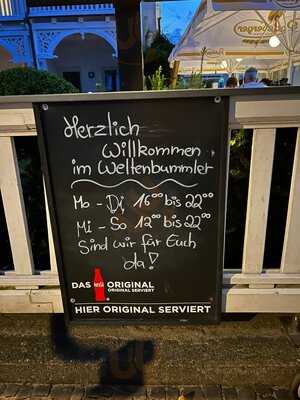 Herzlich
Willkommen
im Weltenbummler
Mo - Di 16⁰⁰ bis 22⁰⁰
Mi - So 12⁰⁰ bis 22⁰⁰
Sind wir für Euch
da!
DAS ORIGINAL
ORIGINAL SERVIERT
HIER ORIGINAL SERVIERT